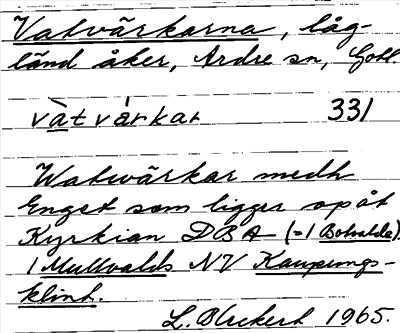 Vatvärkarna, låg-
länd åker, Ardre sn, Gotl.
vàtvárkar 331
Watwärkar medh
Enget som ligger opåt
Kyrkian DBA (=1 Botvalde).
1 Mullvalds NV Kaupungs-
klint.
L. Bleckert 1965.